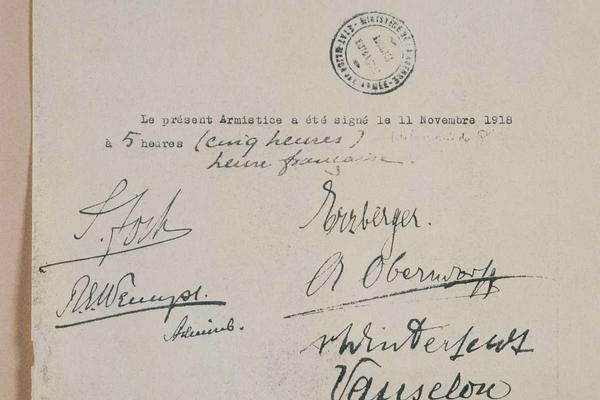 MINISTÈRE DE LA
ARMÉE
Le présent Armistice a été signé le 11 Novembre 1918
à 5 heures (cinq heures)
heure française.
F. Foch
R.E. Wemyss.
Admiral.
Erzberger.
A Oberndorff
v Winterfeldt
Vanselow